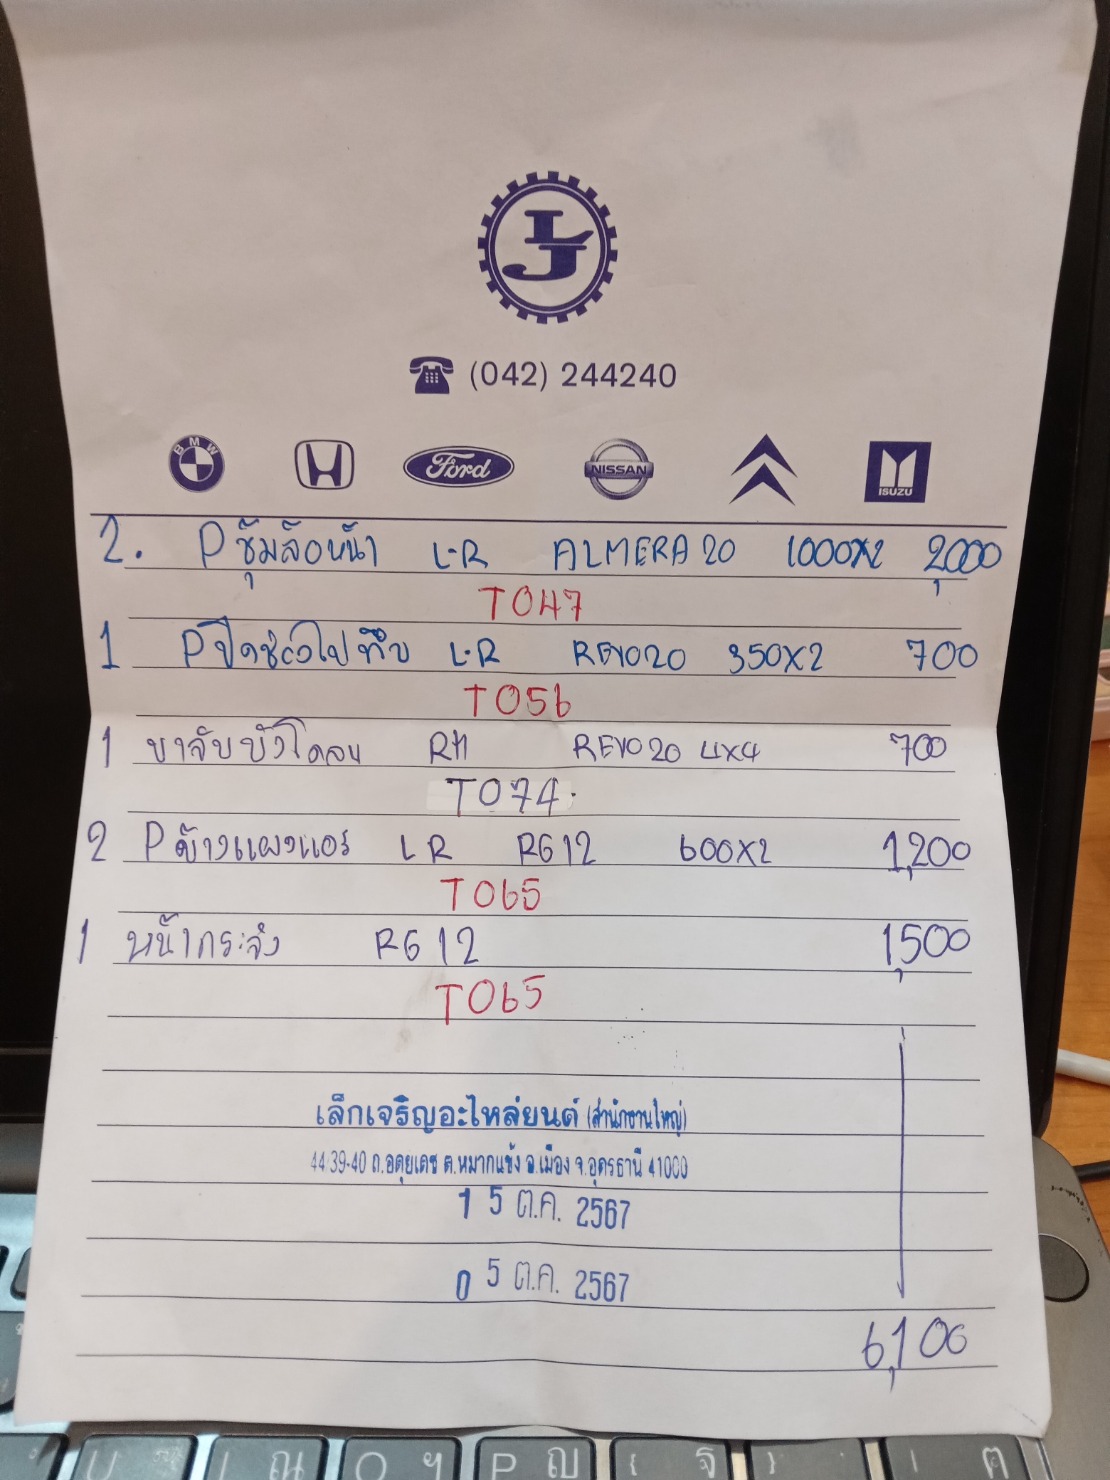 LJ
(042) 244240
BMW
Ford
NISSAN
ISUZU
2. P ซุ้มล้อหน้า L-R ALMERA 20 1000X2 2,000
T047
1 P ปิดช่องไฟทึบ L-R REVO20 350X2 700
T056
1 ขาจับบังโคลน RH REVO 20 4x4 700
T074.
2 P ข้างแผงแอร์ L R RG 12 600X2 1,200
T065
1 หน้ากระจัง RG 12 1,500
T065
เล็กเจริญอะไหล่ยนต์ (สำนักงานใหญ่)
44/39-40 ถ.อดุยเดช ต.หมากแข้ง อ.เมือง จ.อุดรธานี 41000
1 5 ต.ค. 2567
0 5 ต.ค. 2567
6,100